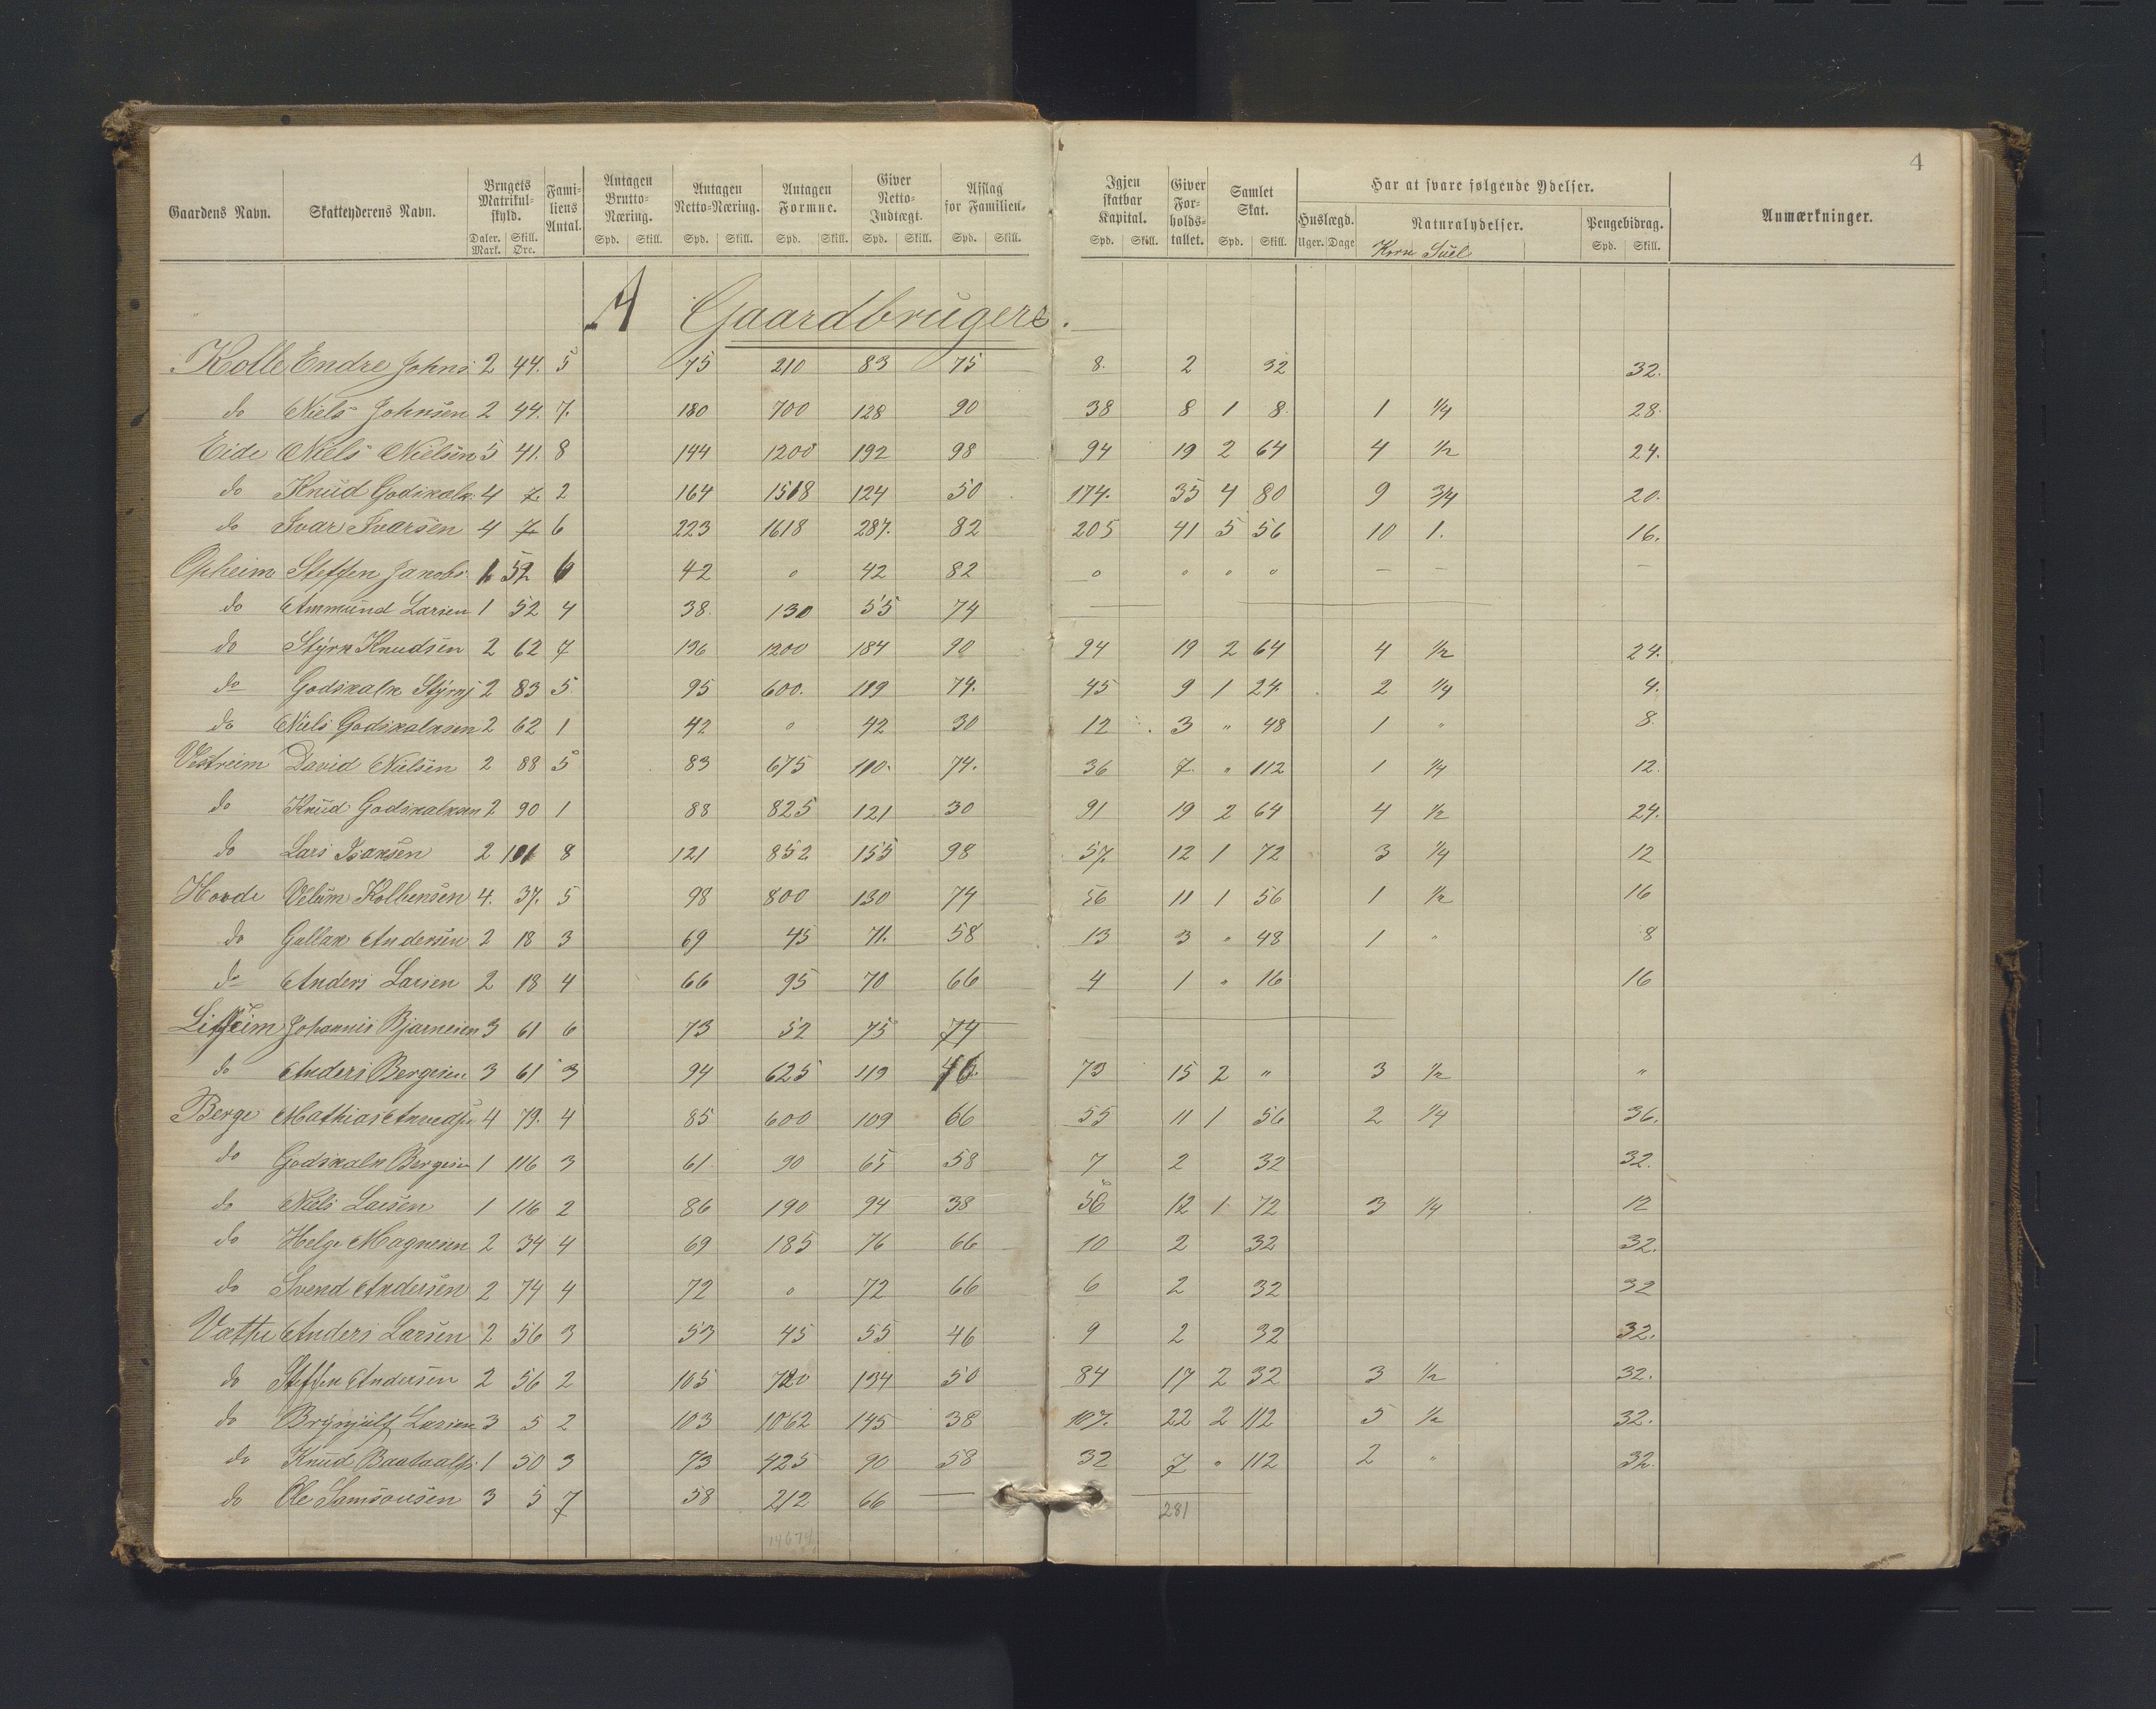 4
Gaardens Navn. Skatteyderens Navn. Brugets Matrikulskyld. Familiens Antal. Antagen Brutto-Næring. Antagen Netto-Næring. Antagen Formue. Giver Netto-Indtægt. Afslag for Familien. Igjen skatbar Kapital. Giver Forholdstallet. Samlet Skat. Har at svare følgende Ydelser. Anmærkninger.
Huslægd. Naturalydelser. Pengebidrag.
Daler. Mark. Skill. Øre. Spd. Skill. Spd. Skill. Spd. Skill. Spd. Skill. Spd. Skill. Spd. Skill. Spd. Skill. Uger. Dage Korn Suel Spd. Skill.
A Gaardbrugere.
Kolle Endre Johns. 2 44. 5 75 210 83 75 8. 2 32 32.
do Niels Johnsen 2 44. 7. 180 700 128 90 38 8 1 8. 1 1/4 28.
Eide Niels Nielsen 5 41. 8 144 1200 192 98 94 19 2 64 4 1/2 24.
do Knud Godskalks. 4 7. 2 164 1518 124 50 174. 35 4 80 9 3/4 20.
do Ivar Ivarsen 4 7 6 223 1618 287. 82 205 41 5 56 10 1. 16.
Opheim Steffen Jacobs. 1 52 6 42 0 42 82 0 " " " — — —
do Ammund Larsen 1 52 4 38. 130 55 74
do Styrk Knudsen 2 62 7 136 1200 184 90 94 19 2 64 4 1/2 24.
do Godskalk Styrkj 2 83 5. 95 600. 119 74. 45 9 1 24. 2 1/4 4.
do Niels Godskalksen 2 62 1 42 0 42 30 12 3 " 48 1 " 8.
Vestreim David Nielsen 2 88 5 83 675 110. 74. 36 7. " 112 1 1/4 12.
do Knud Godskalksen 2 90 1 88 825 121 30 91 19 2 64 4 1/2 24.
do Lars Isaksen 2 101 8 121 852 155 98 57. 12 1 72 3 1/4 12
Hovde Velum Kolbensen 4. 37. 5 98 800 130 74 56 11 1 56 1 1/2 16
do Gullak Andersen 2 18 3 69 45 71. 58 13 3 " 48 1 " 8
do Anders Larsen 2 18 4 66 95 70 66 4 1 " 16 16
Johannis Bjarnesen 3 61 6 73 52 75 74
do Anders Bergesen 3 61 3 94 625 119 46. 73 15 2 " 3 1/2 "
Berge Mathias 4 79. 4 85 600 109 66 55 11 1 56 2 1/4 36.
do Godskalk Bergesen 1 116 3 61 90 65 58 7 2 32 32.
do Niels Larsen 1 116 2 86 190 94 38 56 12 1 72 3 1/4 12
do Helge Magnesen 2 34 4 69 185 76 66 10 2 32 32.
do Svend Andersen 2 74 4 72 0 72 66 6 2 32 32
Vathe Anders Larsen 2 56 3 53 45 55 46 9 2 32 32.
do Steffen Andersen 2 56 2 105 720 134 50 84 17 2 32 3 1/2 32.
do Brynjulf Larsen 3 5 2 103 1062 145 38 107. 22 2 112 5 1/2 32.
do Knud 1 50 3 73 425 90 58 32 7 " 112 2 " 32.
do Ole Samsonsen 3 5 7 58 212 66 —
281